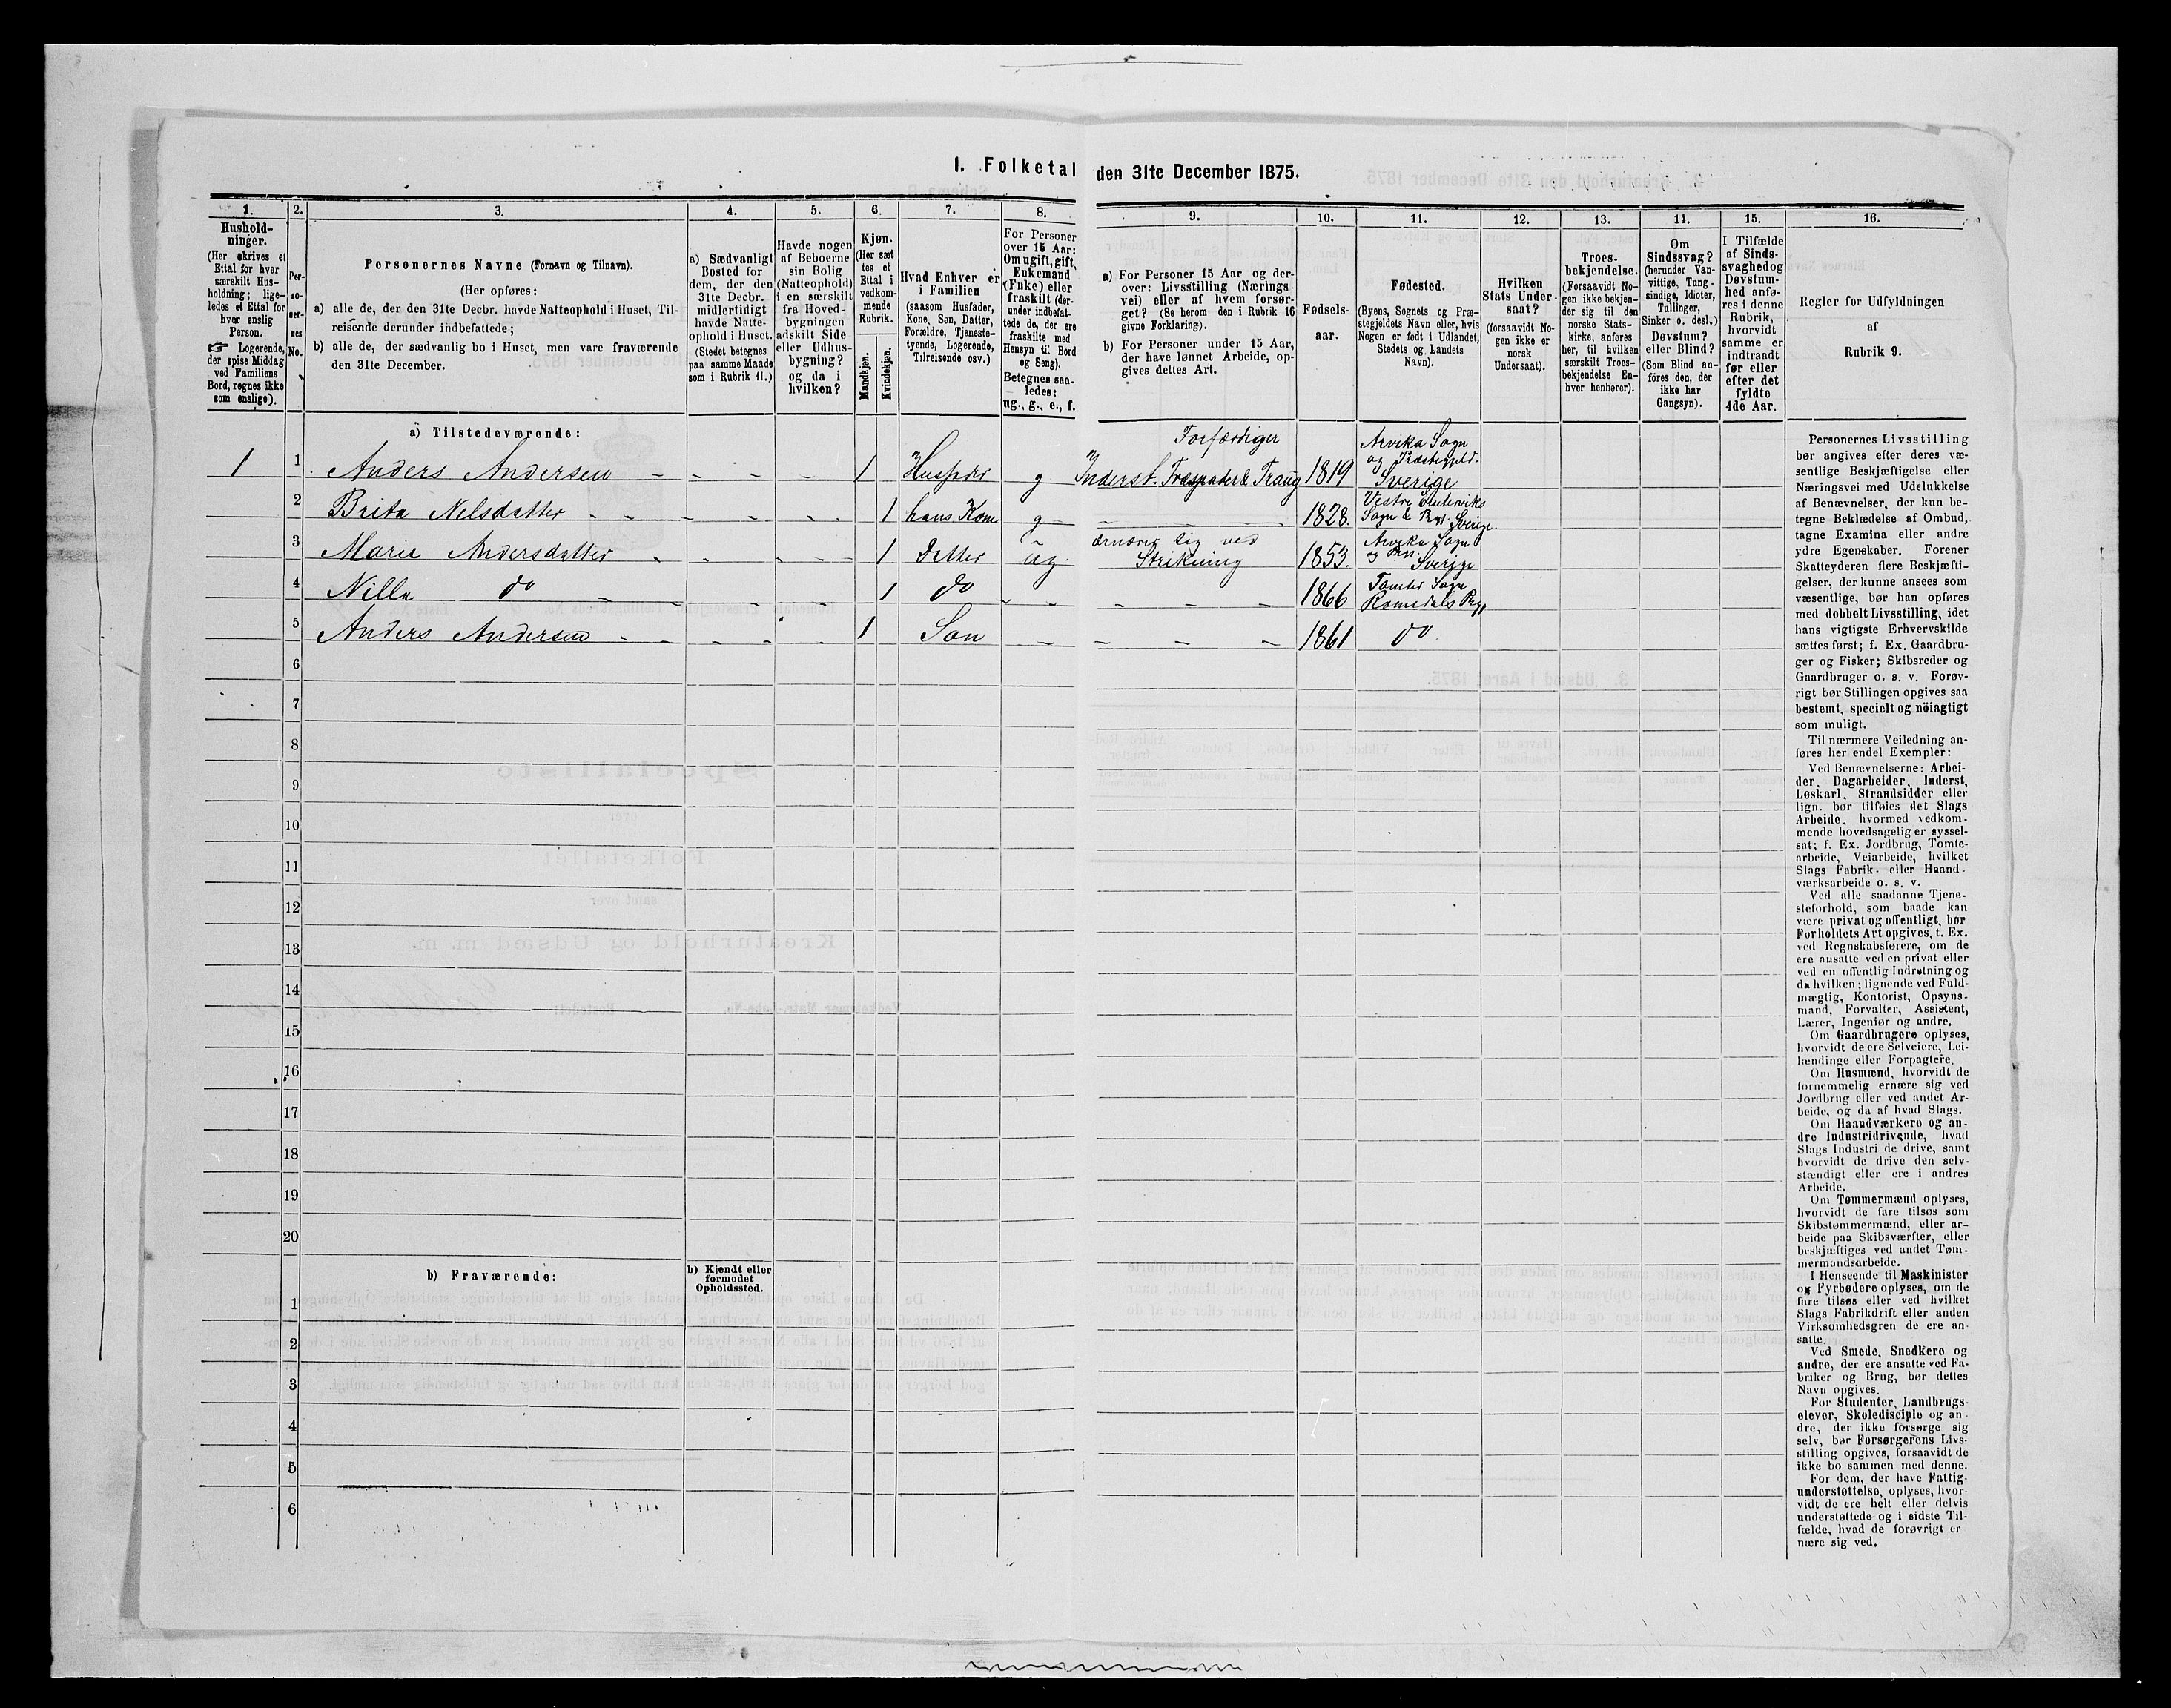 I. Folketal den 31te December 1875.
1.
Hushold-
ninger.
(Her skrives et
Ettal for hver
særskilt Hus-
holdning; lige-
ledes et Ettal for
hver enslig
Person.
☞ Logerende,
der spise Middag
ved Familiens
Bord, regnes ikke
som enslige).
2.
Per-
so-
ner-
nes
No.
3.
Personernes Navne (Fornavn og Tilnavn).
(Her opføres:
a) alle de, der den 31te Decbr. havde Natteophold i Huset, Til-
reisende derunder indbefattede;
b) alle de, der sædvanlig bo i Huset, men vare fraværende
den 31te December.
4.
a) Sædvanligt
Bosted for
dem, der den
31te Decbr.
midlertidigt
havde Natte-
ophold i Huset.
(Stedet betegnes
paa samme Maade
som i Rubrik 11.)
5.
Havde nogen
af Beboerne
sin Bolig
(Natteophold)
i en særskilt
fra Hoved-
bygningen
adskilt Side
eller Udhus-
bygning?
og da i
hvilken?
6.
Kjøn.
(Her sæt
tes et
Ettal i
vedkom-
mende
Rubrik.
Mandkjøn.
Kvindekjøn.
7.
Hvad Enhver er
i Familien
(saasom Husfader,
Kone, Søn, Datter,
Forældre, Tjeneste-
tyende, Logerende,
Tilreisende osv.)
8.
For Personer
over 15 Aar:
Om ugift, gift,
Enkemand
(Enke) eller
fraskilt (der-
under indbefat-
tede de, der ere
fraskilte med
Hensyn til Bord
og Seng).
Betegnes saa-
ledes:
ug., g., e., f.
9.
a) For Personer 15 Aar og der-
over: Livsstilling (Nærings
vei) eller af hvem forsør-
get? (Se herom den i Rubrik 16
givne Forklaring).
b) For Personer under 15 Aar,
der have lønnet Arbeide, op-
gives dettes Art.
10.
Fødsels-
aar.
11.
Fødested.
(Byens, Sognets og Præ-
stegjeldets Navn eller, hvis
Nogen er født i Udlandet,
Stedets og Landets
Navn).
12.
Hvilken
Stats Under-
saat?
(forsaavidt No-
gen ikke er
norsk
Undersaat).
13.
Troes-
bekjendelse.
(Forsaavidt No-
gen ikke bekjen-
der sig til den
norske Stats-
kirke, anføres
her, til hvilken
særskilt Troes-
bekjendelse En-
hver henhører).
14.
Om
Sindssvag?
(herunder Van-
vittige, Tung-
sindige, Idioter,
Tullinger,
Sinker o. desl.)
Døvstum?
eller Blind?
(Som Blind an-
føres den, der
ikke har
Gangsyn).
15.
I Tilfælde
af Sinds-
svaghed og
Døvstum-
hed anfø-
res i denne
Rubrik,
hvorvidt
samme er
indtraadt
før eller
efter det
fyldte
4de Aar.
16.
Regler for Udfyldningen
af
Rubrik 9.
a) Tilstedeværende:
1 1 Anders Andersen 1 Husfader g Inderst. Forfærdiger Træspader & Traug 1819 Arvika Sogn og Præstegjeld. Sverige
2 Brita Nelsdatter 1 hans Kone g 1828. Vestre Sogn & Pgl. Sverige.
3 Marie Andersdatter 1 Datter ug ernærer sig ved Strikning 1853. Arvika Sogn og Sverige
4 Nilla do 1 do 1866 Tomter Sogn Romedals Pgl
5 Anders Andersen 1 Søn 1861 do.
6
7
8
9
10
11
12
13
14
15
16
17
18
19
20
b) Fraværende:
b) Kjendt eller
formodet
Opholdssted.
1
2
3
4
5
6
Personernes Livsstilling
bør angives efter deres væ-
sentlige Beskjæftigelse eller
Næringsvei med Udelukkelse
af Benævnelser, der kun be-
tegne Beklædelse af Ombud,
tagne Examina eller andre
ydre Egenskaber. Forener
Skatteyderen flere Beskjæfti-
gelser, der kunne ansees som
væsentlige, bør han opføres
med dobbelt Livsstilling, idet
hans vigtigste Erhvervskilde
sættes først; f. Ex. Gaardbru-
ger og Fisker; Skibsreder og
Gaardbruger o. s. v. Forøv-
rigt bør Stillingen opgives saa
bestemt, specielt og nöiagtigt
som muligt.
Til nærmere Veiledning an-
føres her endel Exempler:
Ved Benævnelserne: Arbei-
der, Dagarbeider, Inderst,
Løskarl, Strandsidder eller
lign. bør tilføies det Slags
Arbeide, hvormed vedkom-
mende hovedsagelig er syssel-
sat; f. Ex. Jordbrug, Tomte-
arbeide, Veiarbeide, hvilket
Slags Fabrik- eller Haand-
værksarbeide o. s. v.
Ved alle saadanne Tjene-
steforhold, som baade kan
være privat og offentligt, bør
Forholdets Art opgives, f. Ex.
ved Regnskabsførere, om de
ere ansatte ved en privat eller
ved en offentlig Indretning og
da hvilken; lignende ved Fuld-
mægtig, Kontorist, Opsyns-
mand, Forvalter, Assistent,
Lærer, Ingeniør og andre.
Om Gaardbrugere oplyses,
hvorvidt de ere Selveiere, Lei-
lændinge eller Forpagtere.
Om Husmænd, hvorvidt de
fornemmelig ernære sig ved
Jordbrug eller ved andet Ar-
beide, og da af hvad Slags.
Om Haandværkere og an-
dre Industridrivende, hvad
Slags Industri de drive, samt
hvorvidt de drive den selv-
stændigt eller ere i andres
Arbeide.
Om Tømmermænd oplyses,
hvorvidt de fare tilsøs som
Skibstømmermænd, eller ar-
beide paa Skibsværfter, eller
beskjæftiges ved andet Tøm-
mermandsarbeide.
I Henseende til Maskinister
og Fyrbødere oplyses, om de
fare tilsøs eller ved hvilket
Slags Fabrikdrift eller anden
Virksomhedsgren de ere an-
satte.
Ved Smede, Snedkere og
andre, der ere ansatte ved Fa-
briker og Brug, bør dettes
Navn opgives.
For Studenter, Landbrugs-
elever, Skoledisciple og an-
dre, der ikke forsørge sig
selv, bør Forsørgerens Livs-
stilling opgives, forsaavidt de
ikke bo sammen med denne.
For dem, der have Fattig-
understøttelse, oplyses, hvor-
vidt de ere helt eller delvis
understøttede og i sidste Til-
fælde, hvad de forøvrigt er
nære sig ved.